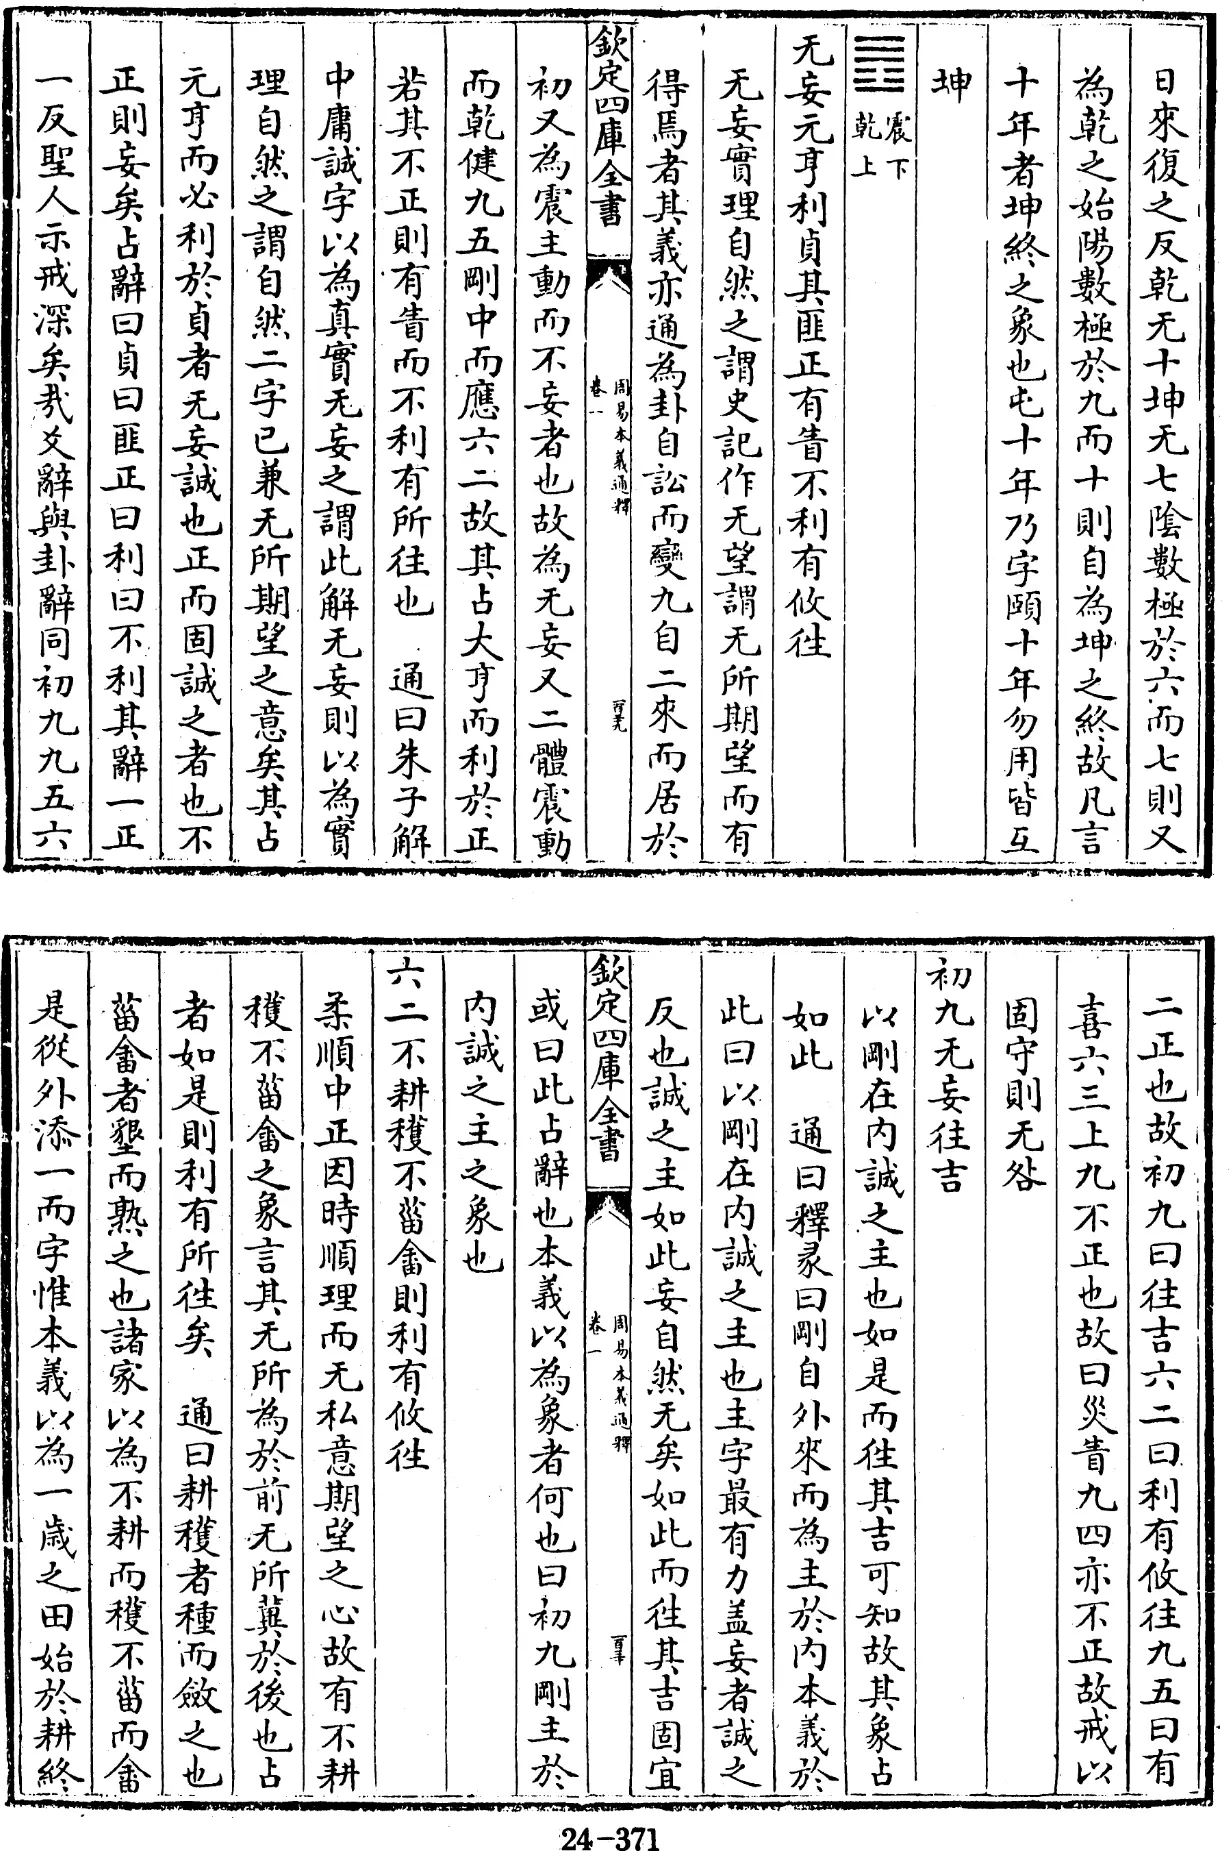 日來復之反乾无十坤无七陰數極於六而七則又
為乾之始陽數極於九而十則自為坤之終故凡言
十年者坤終之象也屯十年乃字頤十年勿用皆互
坤
震下
乾上
无妄元亨利貞其匪正有眚不利有攸往
无妄實理自然之謂史記作无望謂无所期望而有
得焉者其義亦通為卦自訟而變九自二來而居於
欽定四庫全書
周易本義通釋
卷一
初又為震主動而不妄者也故為无妄又二體震動
而乾健九五剛中而應六二故其占大亨而利於正
若其不正則有眚而不利有所往也 通曰朱子解
中庸誠字以為真實无妄之謂此解无妄則以為實
理自然之謂自然二字已兼无所期望之意矣其占
元亨而必利於貞者无妄誠也正而固誠之者也不
正則妄矣占辭曰貞曰匪正曰利曰不利其辭一正
一反聖人示戒深矣哉爻辭與卦辭同初九九五六
二正也故初九曰往吉六二曰利有攸往九五曰有
喜六三上九不正也故曰災眚九四亦不正故戒以
固守則无咎
初九无妄往吉
以剛在内誠之主也如是而往其吉可知故其象占
如此 通曰釋彖曰剛自外來而為主於内本義於
此曰以剛在内誠之主也主字最有力盖妄者誠之
反也誠之主如此妄自然无矣如此而往其吉固宜
欽定四庫全書
周易本義通釋
卷一
或曰此占辭也本義以為象者何也曰初九剛主於
内誠之主之象也
六二不耕穫不菑畬則利有攸往
柔順中正因時順理而无私意期望之心故有不耕
穫不菑畬之象言其无所為於前无所冀於後也占
者如是則利有所往矣 通曰耕穫者種而斂之也
菑畬者墾而熟之也諸家以為不耕而穫不菑而畬
是從外添一而字惟本義以為一歲之田始於耕終
24-371